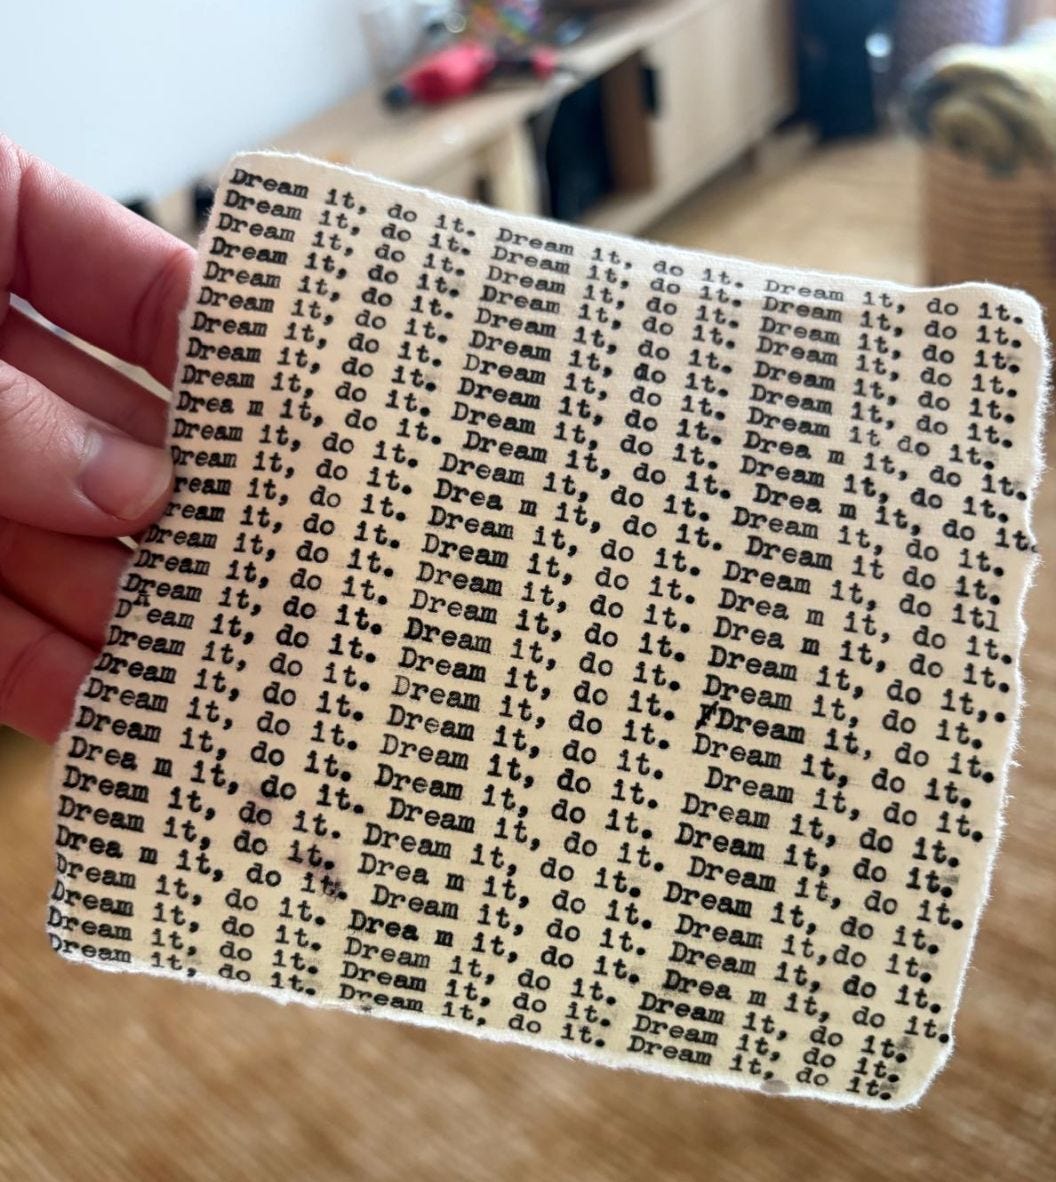 Dream it, do it. Dream it, do it. Dream it, do it.
Dream it, do it. Dream it, do it. Dream it, do it.
Dream it, do it. Dream it, do it. Dream it, do it.
Dream it, do it. Dream it, do it. Dream it, do it.
Dream it, do it. Dream it, do it. Dream it, do it.
Dream it, do it. Dream it, do it. Dream it, do it.
Dream it, do it. Dream it, do it. Dream it do it.
Dream it, do it. Dream it, do it. Drea m it, do it.
Dream it, do it. Dream it, do it. Dream it, do it.
Drea m it, do it. Dream it, do it. Drea m it, do it.
Dream it, do it. Dream it, do it. Dream it, do it.
Dream it, do it. Drea m it, do it. Dream it do it.
ream it, do it. Dream it, do it. Dream it, do itl
ream it, do it. Dream it, do it. Drea m it, do it.
Dream it, do it. Dream it, do it. Drea m it, do it.
Dream it, do it. Dream it, do it. Dream it, do it,.
Dream it, do it. Dream it, do it. Dream it, do it.
DReam it, do it. Dream it, do it. Dream it, do it.
Dream it, do it. Dream it, do it. Dream it, do it.
Dream it, do it. Dream it, do it. Dream it, do it.
Dream it, do it. Dream it, do it. Dream it, do it.
Dream it, do it. Dream it, do it. Dream it, do it.
Drea m it, do it. Dream it, do it. Dream it, do it.
Dream it, do it. Dream it, do it. Dream it, do it.
Dream it, do it. Drea m it, do it. Dream it,do it.
Drea m it, do it. Dream it, do it. Dream it, do it.
Dream it, do it. Drea m it, do it. Drea m it, do it.
Dream it, do it. Dream it, do it. Dream it, do it.
Dream it, do it. Dream it, do it. Dream it, do it.
Dream it, do it. Dream it, do it. Dream it, do it.